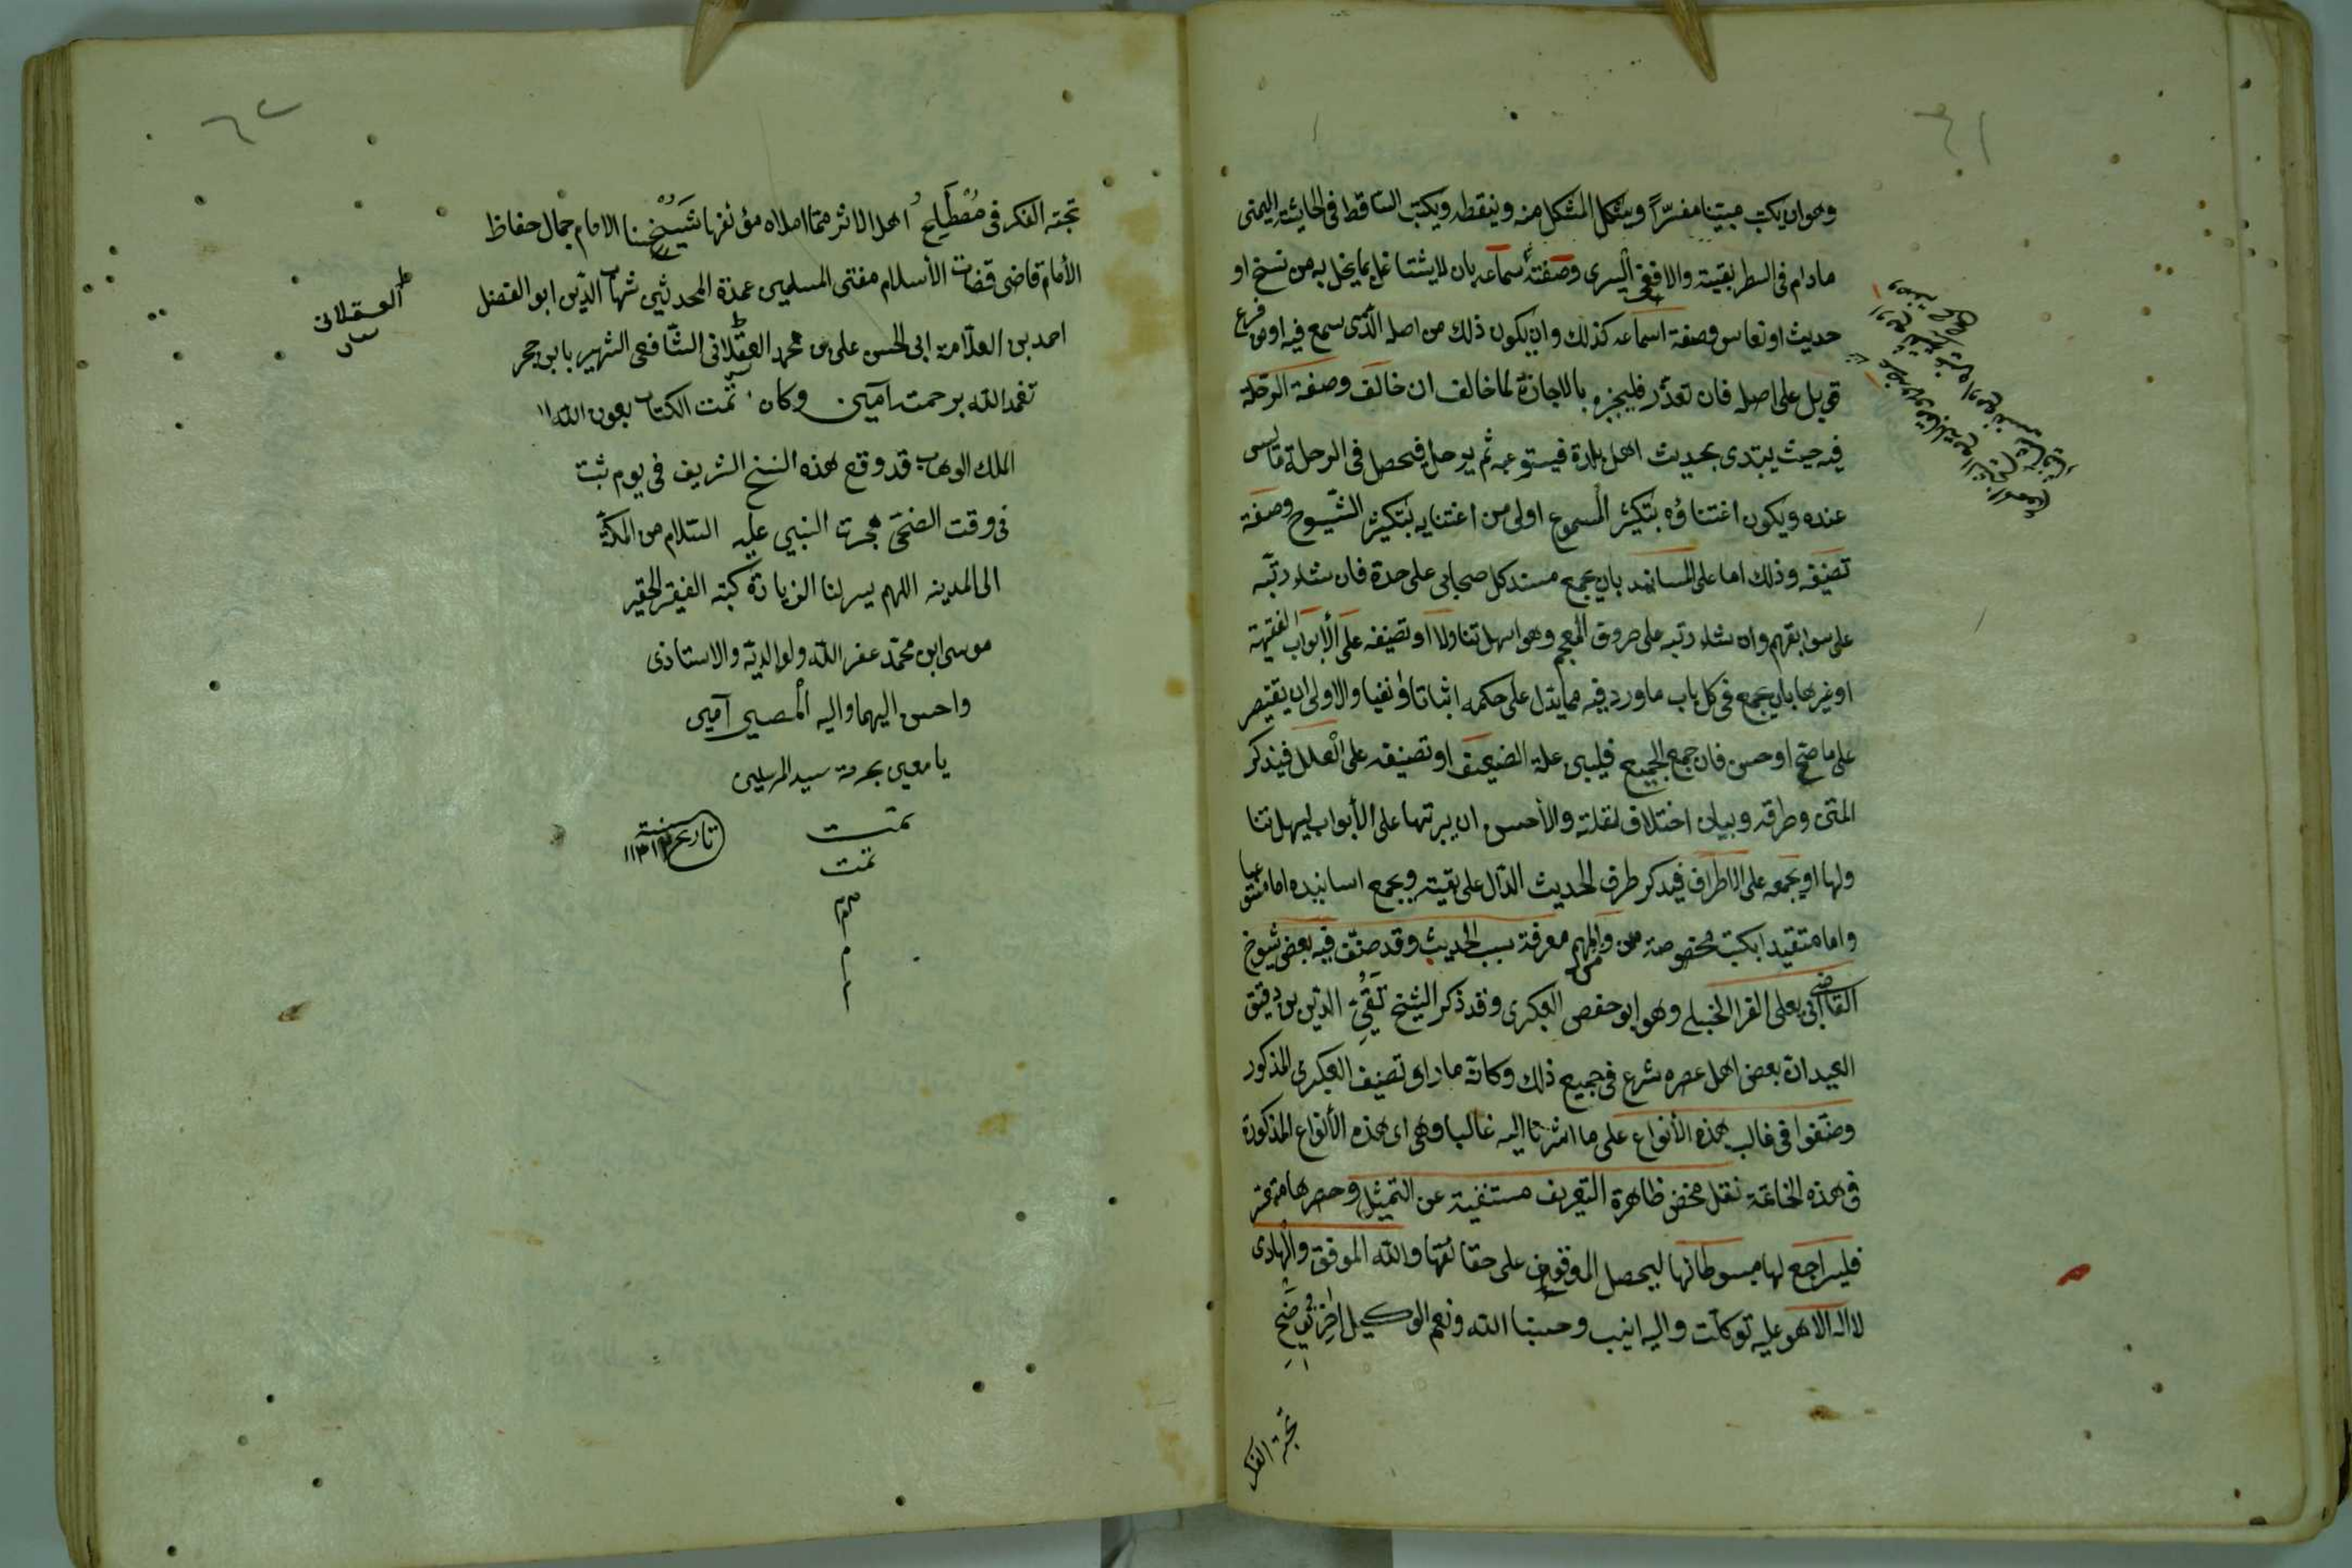 ٦١
وهو ان يكتب مبينا مفسرًا ويشكل المشكل منه وينقطه ويكتب الساقط فى الحاشية اليمنى
مادام فى السطر بقية والا ففى اليسرى وصفة سماعه بان لا يتشاغل بما يخل به من نسخ او
حديث او نعاس وصفة اسماعه كذلك وان يكون ذلك من اصله الذى يسمع فيه او من فرع
قوبل على اصله فان تعذر فليجبره بالاجازة لما خالف ان خالف وصفة الرحلة
فيه حيث يبتدى بحديث اهل بلدة فيستوعبه ثم يرحل فيحصل فى الرحلة ما ليس
عنده ويكون اعتناؤه بتكثير المسموع اولى من اعتنايه بتكثير الشيوخ وصفة
تصنيفه وذلك اما على المسانيد بان يجمع مسند كل صحابى على حدة فان شاء رتبه
على سوابقهم وان شاء رتبه على حروف المعجم وهو اسهل تناولا او تصنيفه على الأبواب الفقيهة
او غيرها بان يجمع فى كل باب ما ورد فيه مما يدل على حكمه اثباتا او نفيا والاولى ان يقتصر
على ما صح او حسن فان جمع الجميع فليبين علة الضعيف او تصنيفه على العلل فيذكر
المتن وطرقه وبيان اختلاف نقلته والأحسن ان يرتبها على الأبواب ليسهل تنا
ولها او يجمعه على الاطراف فيذكر طرف الحديث الدال على بقيته ويجمع اسانيده اما مستوعبا
واما متقيدا بكتب مخصوصة ومن المهم معرفة سبب الحديث وقد صنف فيه بعض شيوخ
القاضى ابى يعلى الفرا الحنبلى وهو ابو حفص العكبرى وقد ذكر الشيخ تقى الدين بن دقيق
العيد ان بعض اهل عصره شرع فى جميع ذلك وكانه ما راى تصنيف العكبرى المذكور
وصنفوا فى غالب هذه الأنواع على ما اشرنا اليه غالبا وهى اى هذه الأنواع المذكورة
فى هذه الخاتمة نقل محض ظاهرة التعريف مستغنية عن التمثيل وحصرها متعسر
فليراجع لها مبسوطاتها ليحصل الوقوف على حقائقها والله الموفق والهادى
لا اله الا هو عليه توكلت واليه انيب وحسبنا الله ونعم الوكيل اخر توضح
نخبة الفكر
٦٢
نخبة الفكر فى مصطلح اهل الاثر مما املاه مؤلفها شيخنا الامام جمال حفاظ
الأمام قاضى قضات الأسلام مفتى المسلمين عمدة المحدثين شهاب الدين ابو الفضل
احمد بن العلامة ابى الحسن على بن محمد العسقلانى الشافعى الشهير بابن حجر
تغمد الله برحمته آمين وكان تمت الكتاب بعون الله
الملك الوهاب قد وقع هذه النسخ الشريف فى يوم ثبت
فى وقت الضحى هجرت النبى عليه السلام من المكة
الى المدينه اللهم يسر لنا الزيادة كتبه الفقير الحقير
موسى ابن محمد غفر الله ولوالديه والاستاذى
واحسن اليهما واليه المصير آمين
يا معين بحرمة سيد المرسلين
تمت
تمت
تم
م
تاريخ سنة
العسقلانى